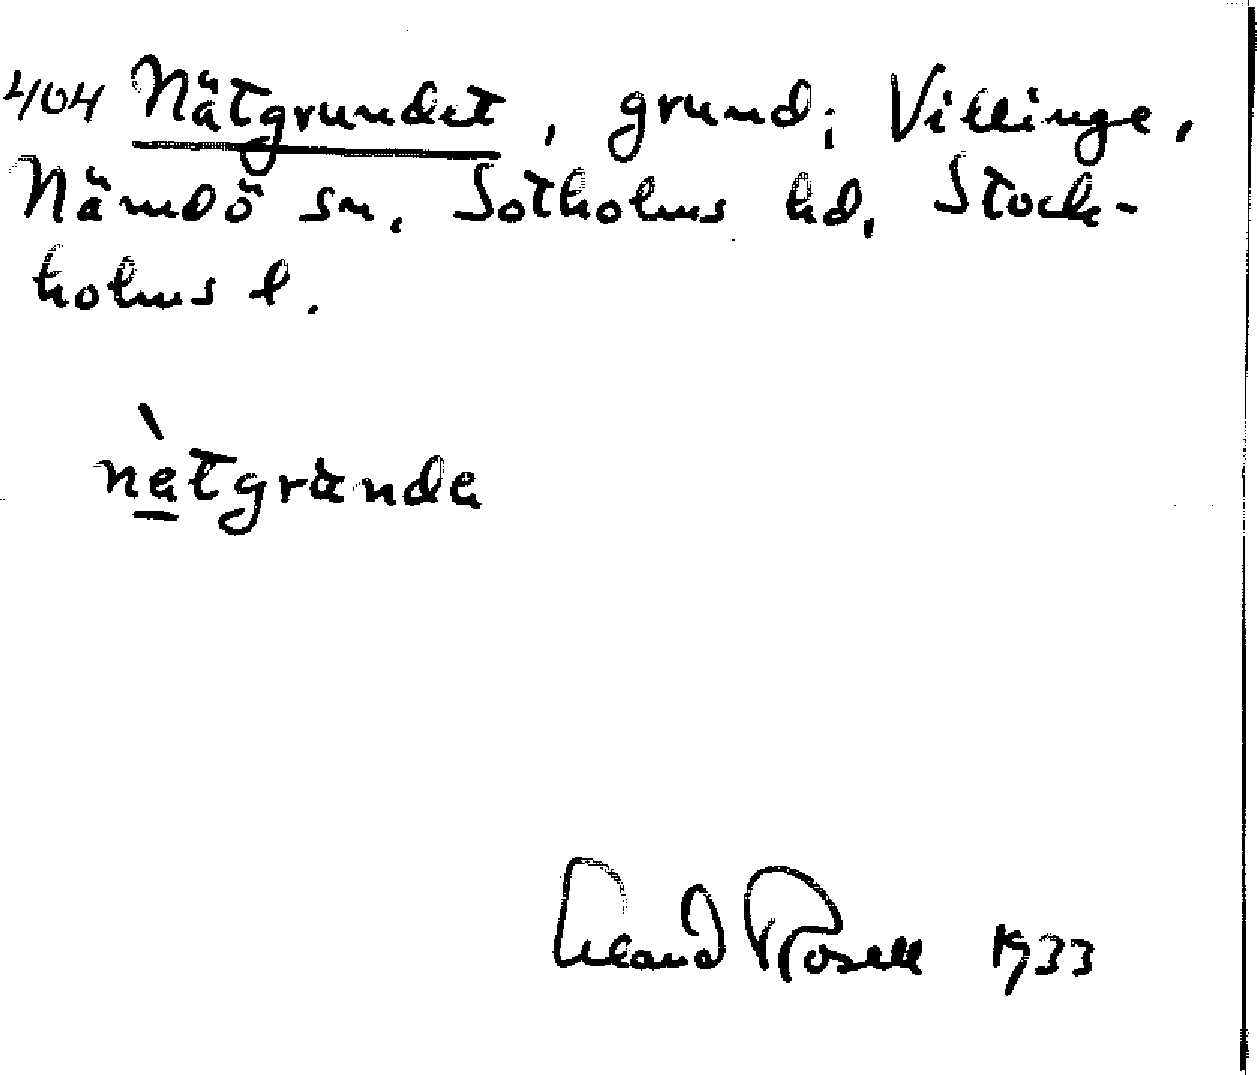 404 Nätgrundet, grund; Villinge,
Nämdö sn. Sotholms hd, Stock-
holms l.
nètgrunde
Erland Rosell 1933